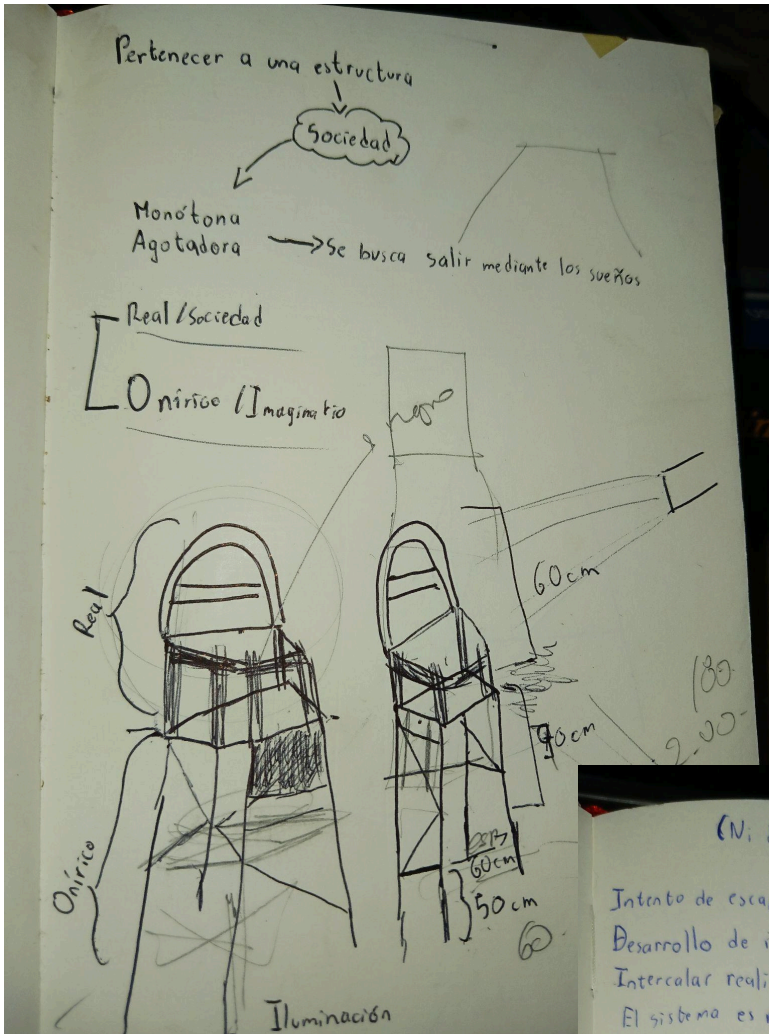 Pertenecer a una estructura
Sociedad
Monótona
Agotadora
Se busca salir mediante los sueños
Real/Sociedad
Onírico/Imaginario
negro
Real
60cm
180
2.00
90cm
Onírico
60cm
50cm
60
Iluminación
(Ni
Intento de esca
Desarrollo de i
Intercalar reali
El sistema es